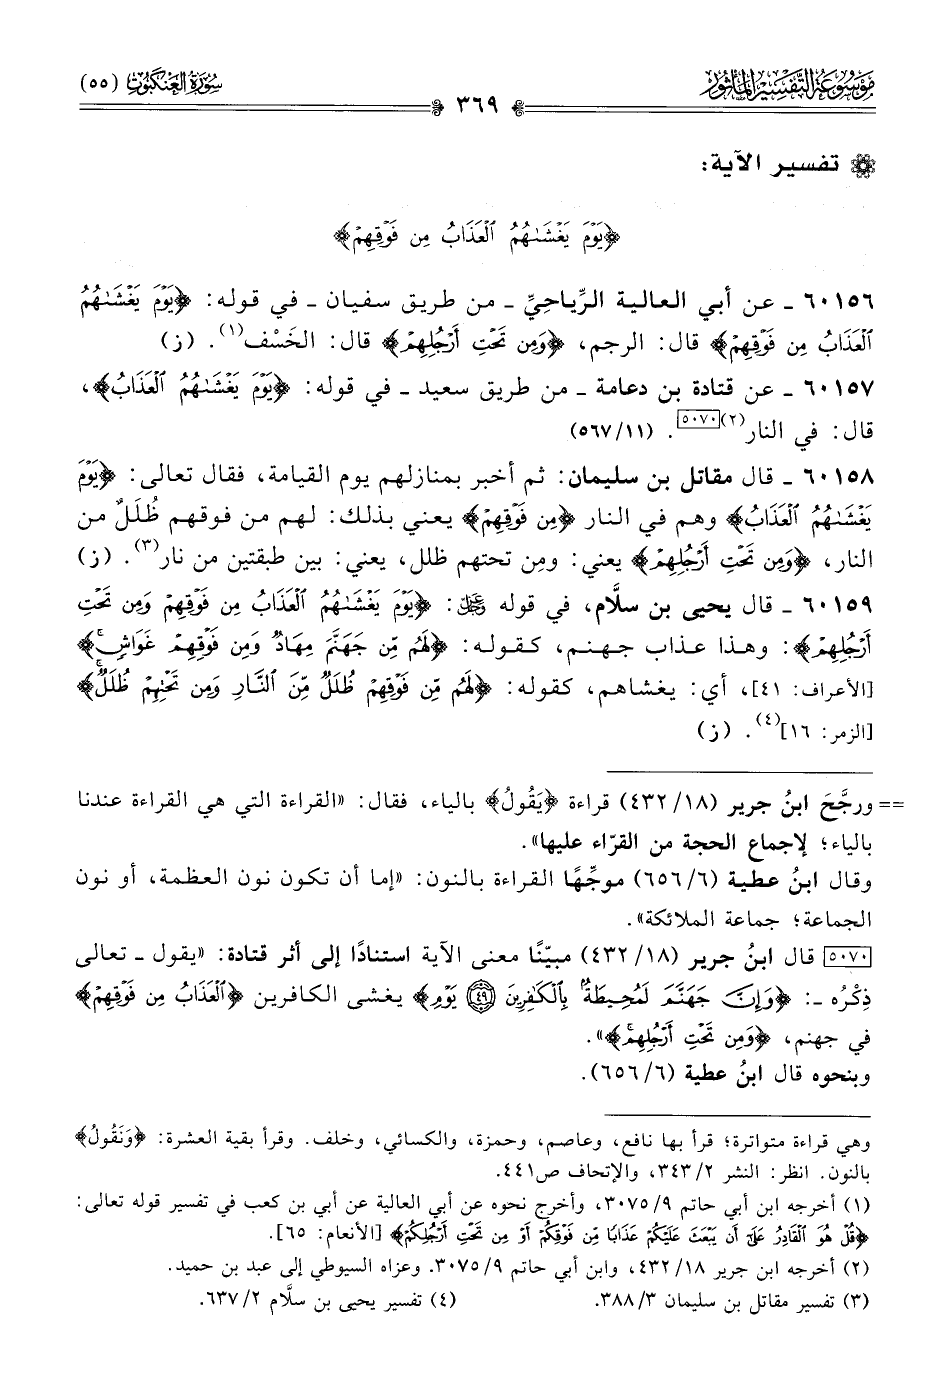 مَوْسُوعَة التَّفْسِيرِ المَأْثُور
سُورَةُ العَنْكَبُوت (٥٥)
٣٦٩
تفسير الآية:
﴿يَوْمَ يَغْشَىٰهُمُ ٱلْعَذَابُ مِن فَوْقِهِمْ﴾
٦٠١٥٦ ـ عن أبي العالية الرِّياحيِّ ـ من طريق سفيان ـ في قوله: ﴿يَوْمَ يَغْشَىٰهُمُ
ٱلْعَذَابُ مِن فَوْقِهِمْ﴾ قال: الرجم، ﴿وَمِن تَحْتِ أَرْجُلِهِمْ﴾ قال: الخَسْف(١). (ز)
٦٠١٥٧ ـ عن قتادة بن دعامة ـ من طريق سعيد ـ في قوله: ﴿يَوْمَ يَغْشَىٰهُمُ ٱلْعَذَابُ﴾،
قال: في النار(٢)[٥٠٧٠]. (١١/ ٥٦٧)
٦٠١٥٨ ـ قال مقاتل بن سليمان: ثم أخبر بمنازلهم يوم القيامة، فقال تعالى: ﴿يَوْمَ
يَغْشَىٰهُمُ ٱلْعَذَابُ﴾ وهم في النار ﴿مِن فَوْقِهِمْ﴾ يعني بذلك: لهم من فوقهم ظُلَلٌ من
النار، ﴿وَمِن تَحْتِ أَرْجُلِهِمْ﴾ يعني: ومِن تحتهم ظلل، يعني: بين طبقتين من نار(٣). (ز)
٦٠١٥٩ ـ قال يحيى بن سلَّام، في قوله ﷿: ﴿يَوْمَ يَغْشَىٰهُمُ ٱلْعَذَابُ مِن فَوْقِهِمْ وَمِن تَحْتِ
أَرْجُلِهِمْ﴾: وهذا عذاب جهنم، كقوله: ﴿لَهُم مِّن جَهَنَّمَ مِهَادٌ وَمِن فَوْقِهِمْ غَوَاشٍ﴾
[الأعراف: ٤١]، أي: يغشاهم، كقوله: ﴿لَهُم مِّن فَوْقِهِمْ ظُلَلٌ مِّنَ ٱلنَّارِ وَمِن تَحْتِهِمْ ظُلَلٌ﴾
[الزمر: ١٦](٤). (ز)
== ورجَّحَ ابنُ جرير (١٨/ ٤٣٢) قراءة ﴿يَقُولُ﴾ بالياء، فقال: «القراءة التي هي القراءة عندنا
بالياء؛ لإجماع الحجة من القرّاء عليها».
وقال ابنُ عطية (٦/ ٦٥٦) موجِّهًا القراءة بالنون: «إما أن تكون نون العظمة، أو نون
الجماعة؛ جماعة الملائكة».
[٥٠٧٠] قال ابنُ جرير (١٨/ ٤٣٢) مبيّنًا معنى الآية استنادًا إلى أثر قتادة: «يقول ـ تعالى
ذِكْرُه ـ: ﴿وَإِنَّ جَهَنَّمَ لَمُحِيطَةٌ بِٱلْكَٰفِرِينَ ٤٩ يَوْمَ﴾ يغشى الكافرين ﴿ٱلْعَذَابُ مِن فَوْقِهِمْ﴾
في جهنم، ﴿وَمِن تَحْتِ أَرْجُلِهِمْ﴾».
وبنحوه قال ابنُ عطية (٦/ ٦٥٦).
وهي قراءة متواترة؛ قرأ بها نافع، وعاصم، وحمزة، والكسائي، وخلف. وقرأ بقية العشرة: ﴿وَنَقُولُ﴾
بالنون. انظر: النشر ٢/ ٣٤٣، والإتحاف ص٤٤١.
(١) أخرجه ابن أبي حاتم ٩/ ٣٠٧٥، وأخرج نحوه عن أبي العالية عن أبي بن كعب في تفسير قوله تعالى:
﴿قُلْ هُوَ ٱلْقَادِرُ عَلَىٰٓ أَن يَبْعَثَ عَلَيْكُمْ عَذَابًا مِّن فَوْقِكُمْ أَوْ مِن تَحْتِ أَرْجُلِكُمْ﴾ [الأنعام: ٦٥].
(٢) أخرجه ابن جرير ١٨/ ٤٣٢، وابن أبي حاتم ٩/ ٣٠٧٥. وعزاه السيوطي إلى عبد بن حميد.
(٣) تفسير مقاتل بن سليمان ٣/ ٣٨٨. (٤) تفسير يحيى بن سلَّام ٢/ ٦٣٧.